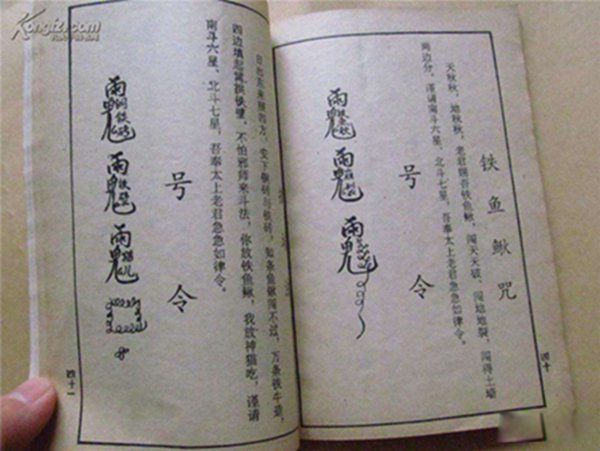 铁鱼鳅咒
天秋秋，地秋秋，老君赐吾铁鱼鳅，闯天天破，闯地地裂，闯得土墙
两边分，谨请南斗六星，北斗七星，吾奉太上老君急急如律令。
号令
四十
日出东来照四方，安下铜砖与铁砖，条鱼鳅闯不过，万条铁牛
四边墙起铁壁，不怕邪师来斗法，你放铁鱼鳅，我放神猫吃，谨请
南斗六星，北斗七星，吾奉太上老君急急如律令。
号令
四十一
Kongfz.com